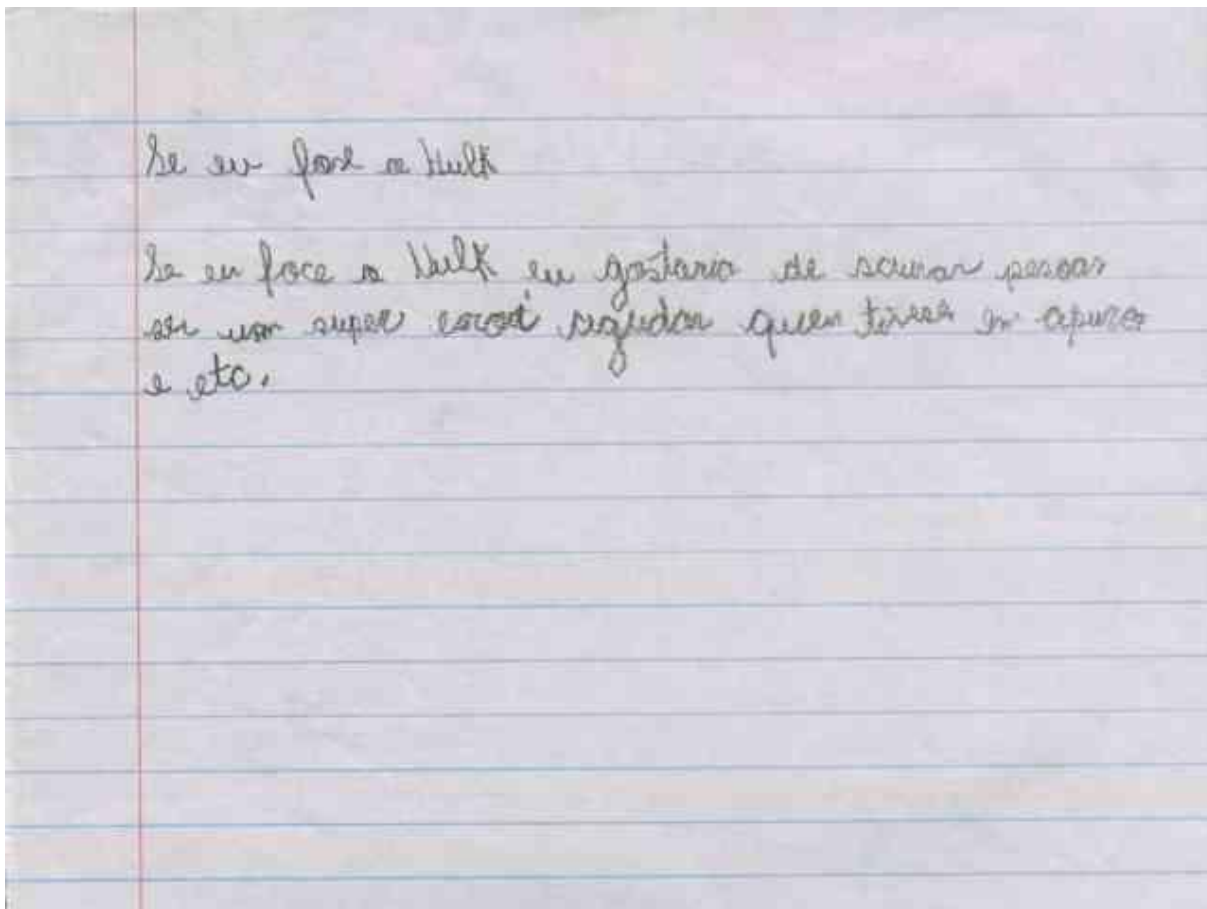 Se eu fose o Hulk
Se eu foce o Hulk eu gostaria de scurar pesoas
ser um super eroi ajudar quen tives em apuros
e etc.